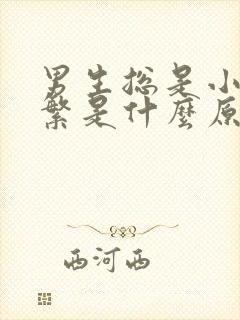 男生总是小
繁是什麼原
西河西